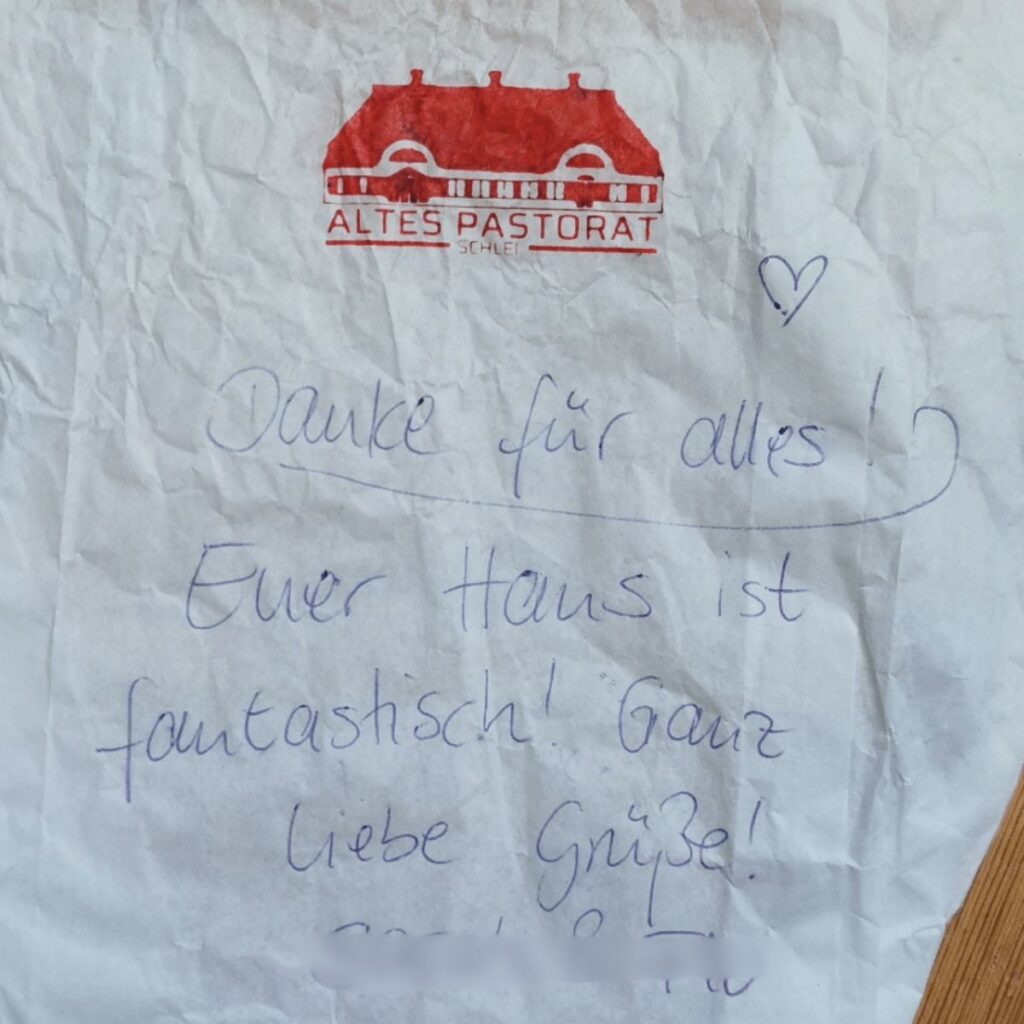 ALTES PASTORAT
SCHLEI
Danke für alles!
Euer Haus ist
fantastisch! Ganz
liebe Grüße!